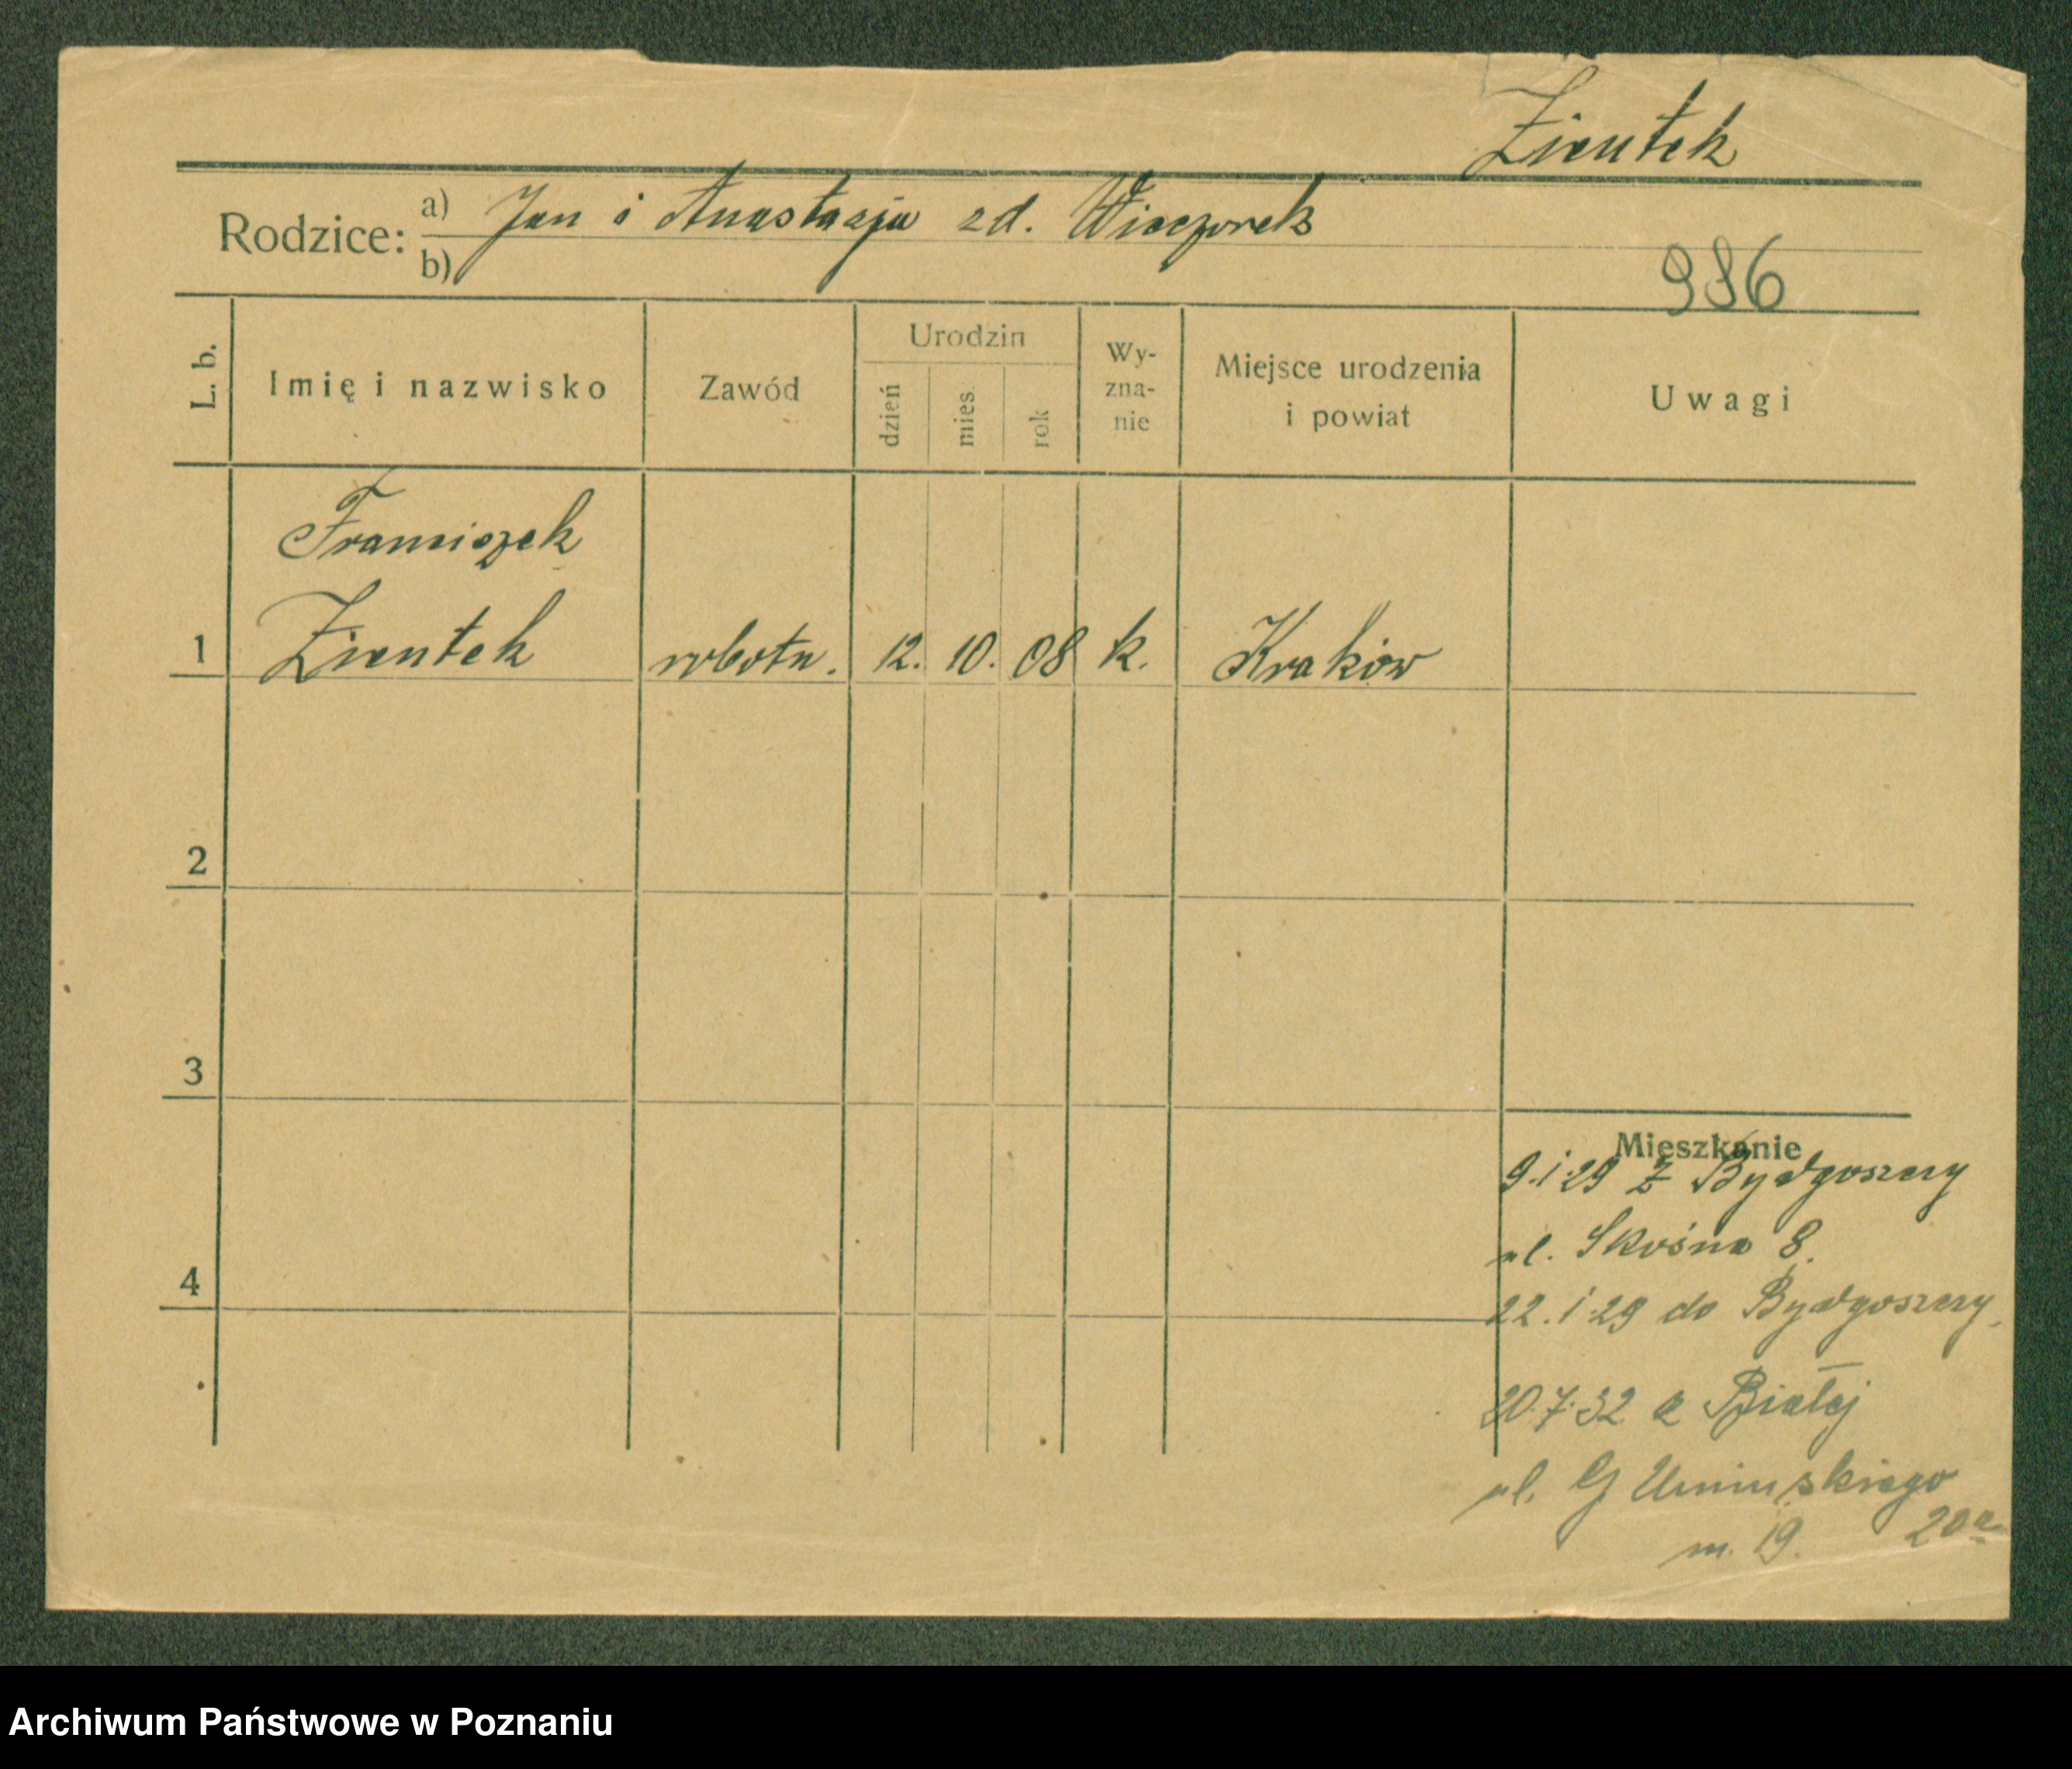 Zientek
Rodzice: a) Jan i Anastazja zd. Wieczorek
b)
986
L. b.
Imię i nazwisko
Zawód
Urodzin
dzień
mies.
rok
Wy-
zna-
nie
Miejsce urodzenia
i powiat
Uwagi
Franciszek
1 Zientek robotn. 12. 10. 08 k. Kraków
2
3
Mieszkanie
9.i.29 z Bydgoszczy
ul. Skośna 8.
4
22.i.29 do Bydgoszczy.
20.7.32 z Białej
ul. G Umińskiego
20a
m. 19.
Archiwum Państwowe w Poznaniu